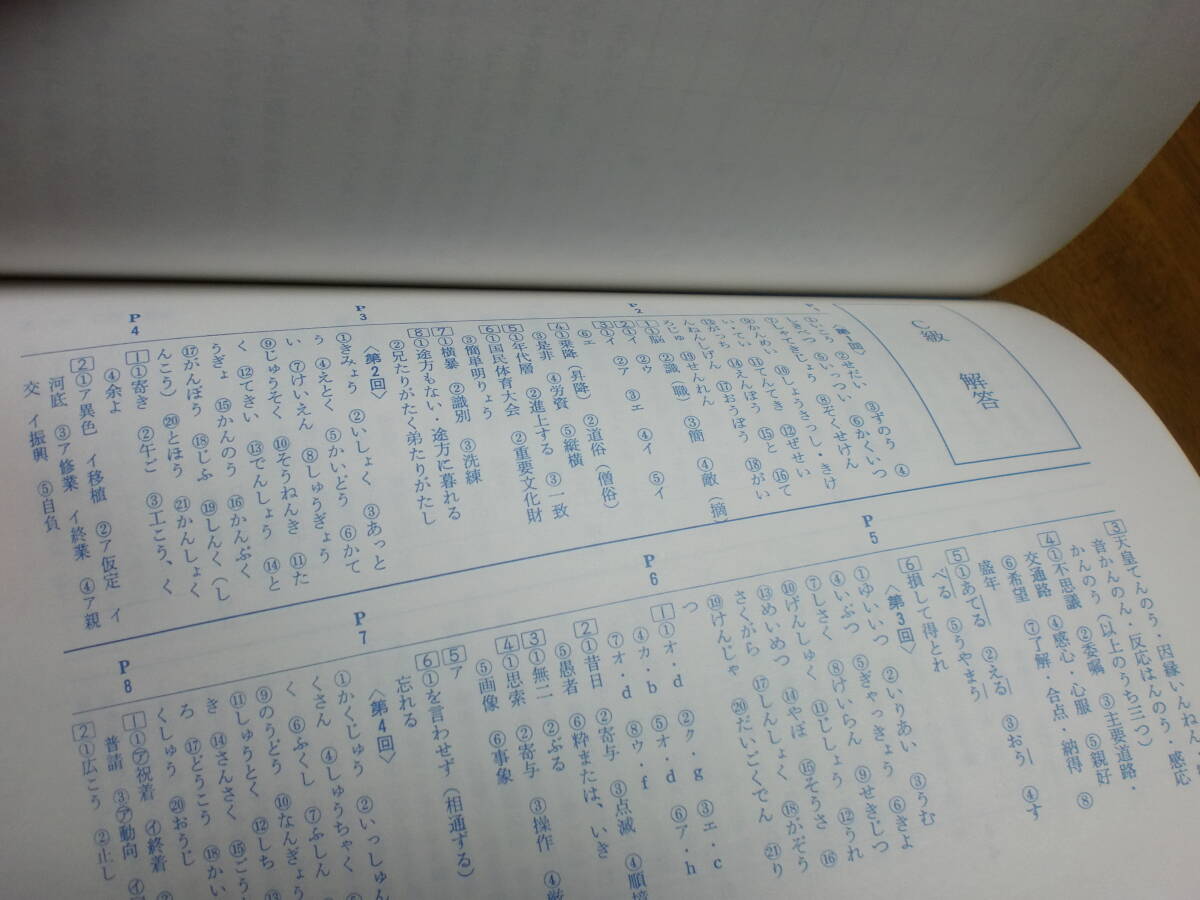 C級 解答
P2
〈第1回〉
②せたい ③ずのう ④
⑤い ⑥かくいつ
⑧ぞくせけん
⑩しょうさっし・きけ
⑪てんてき ⑫ぜせい
い・てい ⑭さんぽう ⑮と ⑯て
⑰おうぼう ⑱がい
⑲せんれん
1①脳 ②識(職) ③簡 ④敵(摘)
2①イ ②ウ ③エ ④イ ⑤イ
3①イ ②ア
⑥エ
4①乗降(昇降) ②道俗(僧俗)
③是非 ④労資 ⑤縦横
5①年代層 ②進上する ③一致
6①国民体育大会 ②重要文化財
③簡単明りょう
7①横暴 ②識別 ③洗練
8①途方もない・途方に暮れる
②兄たりがたく弟たりがたし
P3
〈第2回〉
①きみょう ②いしょく ③あっと
う ④えとく ⑤かいどう ⑥かて
い ⑦けいえん ⑧しゅうぎょう
⑨じゅうそく ⑩そうねんき ⑪た
く ⑫てきい ⑬でんしょう ⑭と
うぎょ ⑮かんのう ⑯かんぷく
⑰がんぼう ⑱じふ ⑲しんく(し
んこう) ⑳とほう ㉑かんしょく
P4
1①寄き ②午ご ③工こう、く
④余よ
2①ア異色 イ移植 ②ア仮定 イ
河底 ③ア修業 イ終業 ④ア親
交 イ振興 ⑤自負
3天皇てんのう・因縁いんねん・
音かんのん・反応はんのう・感応
かんのう(以上のうち三つ)
4①不思議 ②委嘱 ③主要道路・
交通路 ④感心・心服 ⑤親好
⑥希望 ⑦了解・合点・納得 ⑧
盛年
5①あてる ②える ③おう ④す
べる ⑤うやまう
6損して得とれ
P5
〈第3回〉
①ゆいいつ ②いりあい ③うむ
④いぶつ ⑤ぎゃっきょう ⑥きよ
⑦しさく ⑧けいらん ⑨せきじつ
⑩げんしゅく ⑪じしょう ⑫うれ
⑬めいめつ ⑭やぼ ⑮そうさ ⑯
さくがら ⑰しんしょく ⑱かぞう
⑲けんじゃ ⑳だいごくでん ㉑り
つ
P6
1①オ・d ②ク・g ③エ・c
④カ・b ⑤オ・d ⑥ア・h
⑦オ・d ⑧ウ・f
2①昔日 ②寄与 ③点滅 ④順境
⑤愚者 ⑥粋または、いき
3①無二 ②ぶる
4①思索 ②寄与 ③操作 ④厳
⑤画像 ⑥事象
5ア
6①を言わせず(相通ずる)
忘れる
P7
〈第4回〉
①かくじゅう ②いっしゅん
くさん ④しゅうちゃく ⑤
く ⑥ふくし ⑦ふしん
⑨のうどう ⑩なんぎょう
⑪しゅうとく ⑫しち ⑬
き ⑭さんさく ⑮ごう
ろ ⑰どうこう ⑱かい
くしゅう ⑳おうじ
P8
1①ア祝着 イ終着 ②
普請 ③ア動向 イ
2①広こう ②止し